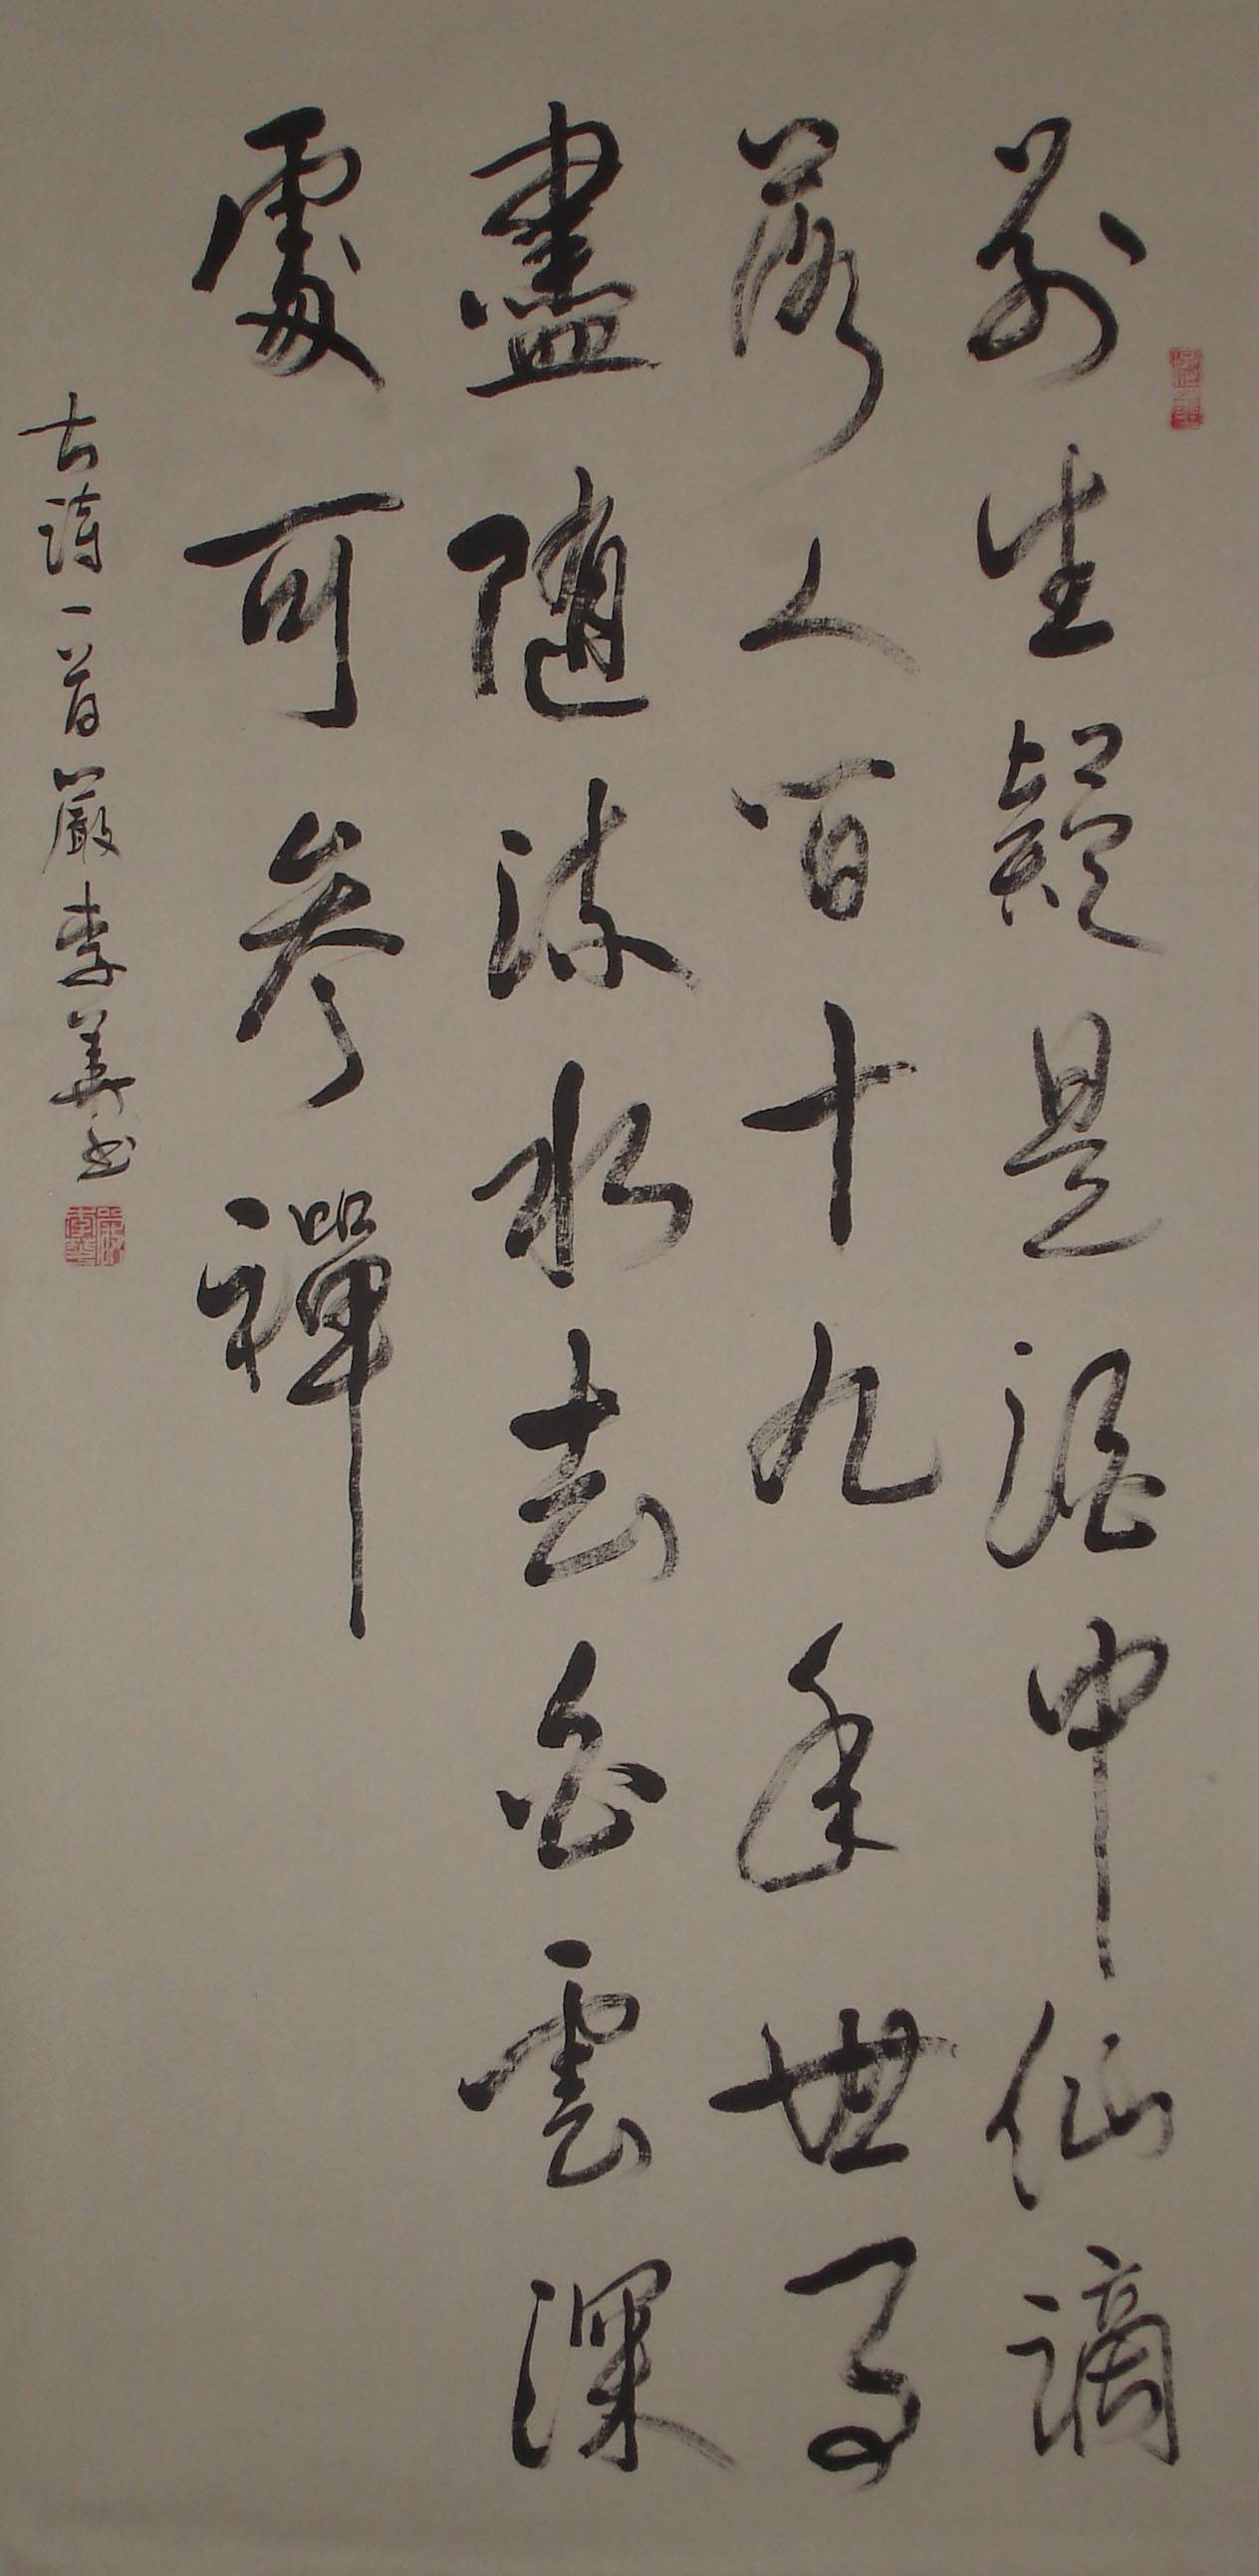 前生疑是酒中仙謫
落人間十九年世事
盡隨流水去白雲深
處可參禪
古詩一首嚴李華書